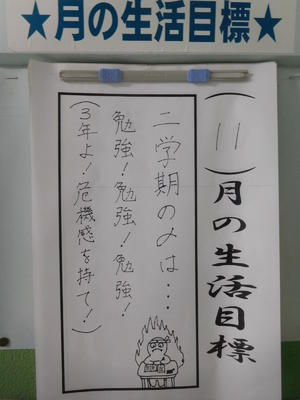 ★月の生活目標★
(11)月の生活目標
二学期の〆は・・・
勉強!勉強!勉強!
(3年よ!危機感を持て!)